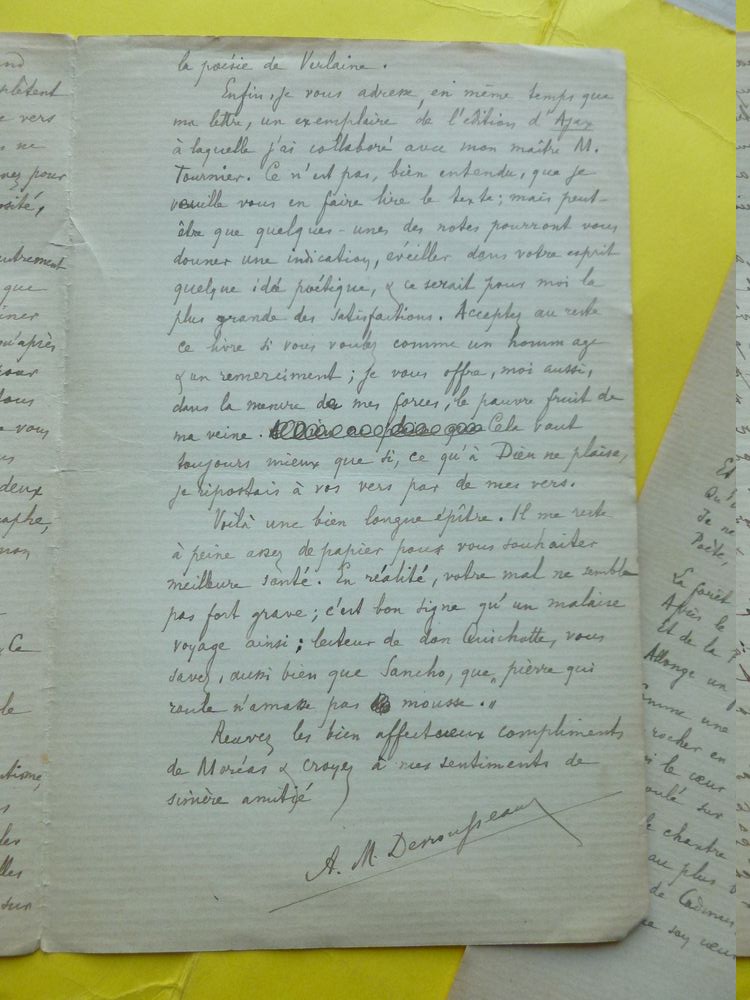 la poésie de Verlaine.
Enfin, je vous adresse, en même temps que
ma lettre, un exemplaire de l'édition d'Ajax
à laquelle j'ai collaboré avec mon maître M.
Tournier. Ce n'est pas, bien entendu, que je
veuille vous en faire lire le texte; mais peut-
être que quelques-unes des notes pourront vous
donner une indication, éveiller dans votre esprit
quelque idée poétique, & ce serait pour moi la
plus grande des satisfactions. Acceptez au reste
ce livre si vous voulez comme un hommage
& un remerciment; je vous offre, moi aussi,
dans la mesure de mes forces, le pauvre fruit de
ma veine. Cela vaut
toujours mieux que si, ce qu'à Dieu ne plaise,
je ripostais à vos vers par de mes vers.
Voilà une bien longue épître. Il me reste
à peine assez de papier pour vous souhaiter
meilleure santé. En réalité, votre mal ne semble
pas fort grave; c'est bon signe qu'un malaise
voyage ainsi; lecteur de don Quichotte, vous
savez, aussi bien que Sancho, que "pierre qui
roule n'amasse pas mousse."
Recevez les bien affectueux compliments
de Moréas & croyez à mes sentiments de
sincère amitié
A. M. Desrousseaux
plètent
vers
ne
nez pour
osité,
autrement
que
iner
qu'après
pour
tous
vous
deux
aphe,
mon
Ce
le
les
lles
sur
Et
Je ne
Poète,
La forêt
Après le
Et de la
Allonge un
omme une
rocher en
le cœur
oulé sur
le chantre
au plus
de Cadmus